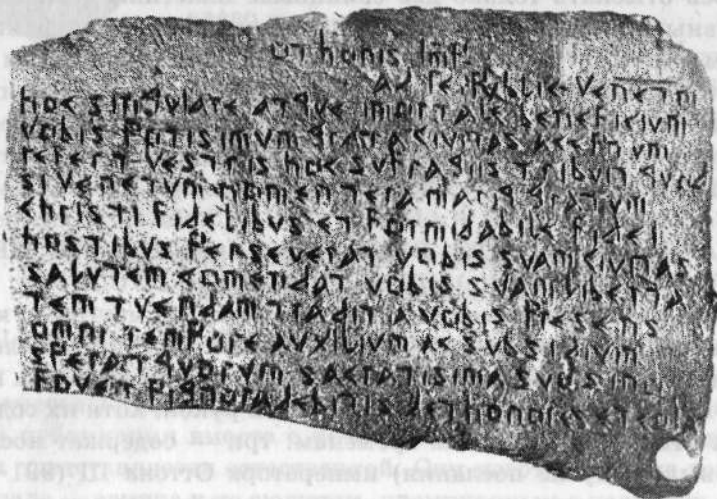 OThonis Imp.
Ad Reipublic Venetni
hoc singvlare atqve inmortale beneficivm
vobis potisimvm grata civitas aceptvm
refert vestris hoc svfragiis tribvit qvod
si venetvm nomen tera mariq gratvm
christi fidelibvs et formidabile fidei
hostibvs perseverat vobis svam civitas
salvtem comendat vobis svam liberta
tem tvendam tradit a vobis presens
omni tempore avxilivm ac svbsidivm
sperat qvorvm sacratisima svos in
fovet pignora debitis et honores et